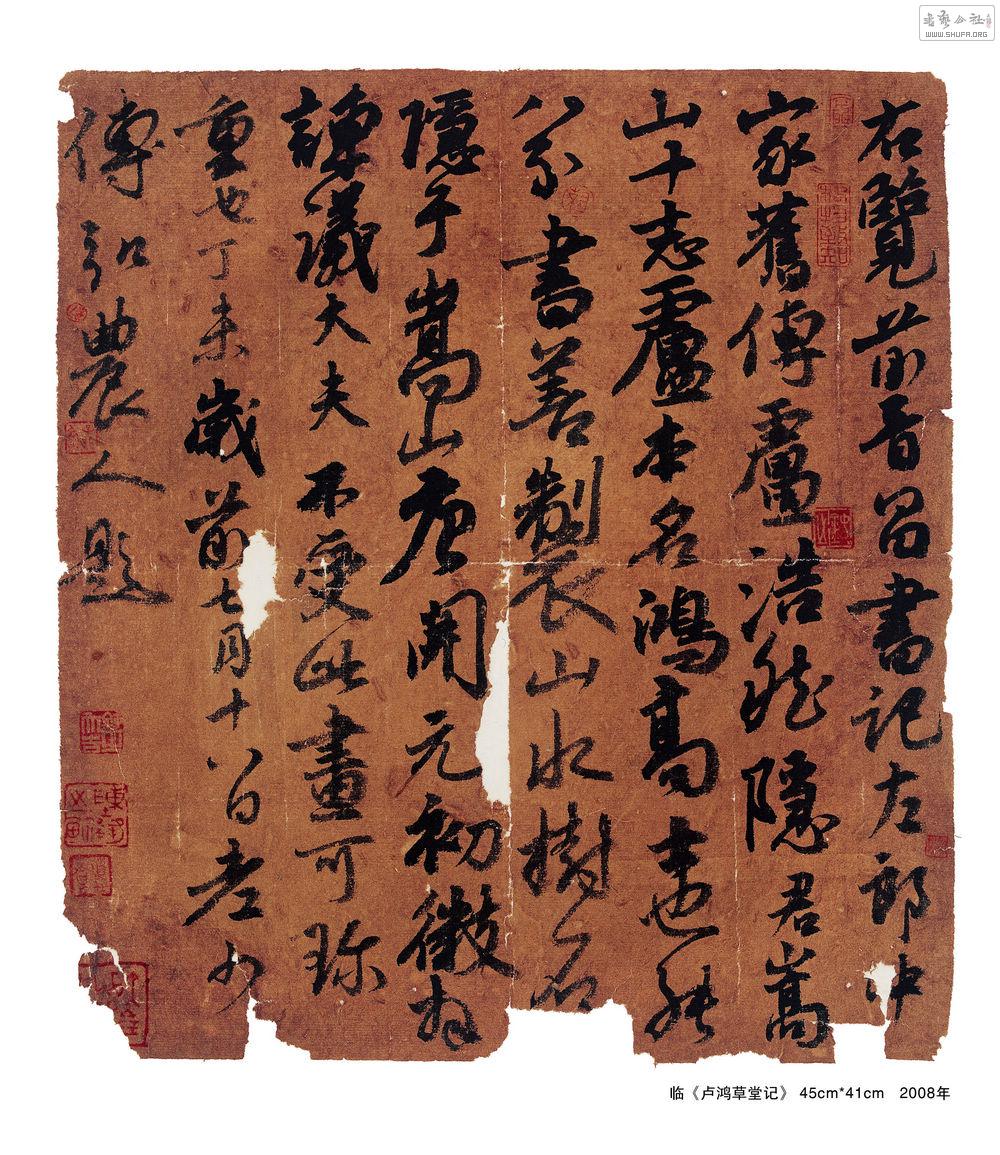 右覽前晉昌書記左郎中
家舊傳盧浩然隱君嵩
山十志盧本名鴻高士也能
八分書善製山水樹石
隱于嵩山唐開元初徵為
諫議大夫不受此畫可珍
重也丁未歲前七月十八日老少
傅弘農人題
临《卢鸿草堂记》 45cm*41cm 2008年
書藝公社
WWW.SHUFA.ORG